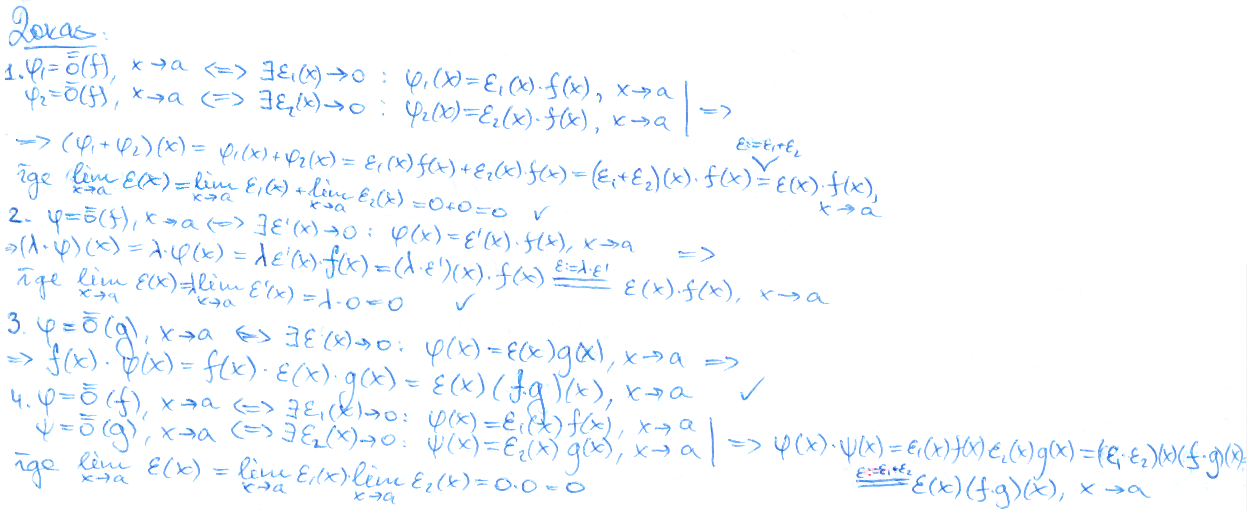 Доказ:
1. φ₁=ō̄(f), x→a <=> ∃ε₁(x)→0 : φ₁(x)=ε₁(x)·f(x), x→a | =>
φ₂=ō̄(f), x→a <=> ∃ε₂(x)→0 : φ₂(x)=ε₂(x)·f(x), x→a
=> (φ₁+φ₂)(x)= φ₁(x)+φ₂(x)= ε₁(x)f(x)+ε₂(x)·f(x)=(ε₁+ε₂)(x)·f(x) ε:=ε₁+ε₂ = ε(x)·f(x), x→a
īge lim x→a ε(x)=lim x→a ε₁(x)+lim x→a ε₂(x)=0+0=0 ✓
2. φ=ō̄(f), x→a <=> ∃ε'(x)→0: φ(x)=ε'(x)·f(x), x→a =>
=>(λ·φ)(x)=λ·φ(x)=λε'(x)·f(x)=(λ·ε')(x)·f(x) ε:=λ·ε' = ε(x)·f(x), x→a
īge lim x→a ε(x)=λ lim x→a ε'(x)=λ·0=0 ✓
3. φ=ō̄(g), x→a <=> ∃ε(x)→0: φ(x)=ε(x)g(x), x→a =>
=> f(x)·φ(x)=f(x)·ε(x)·g(x)=ε(x)(f·g)(x), x→a ✓
4. φ=ō̄(f), x→a <=> ∃ε₁(x)→0: φ(x)=ε₁(x)f(x), x→a
ψ=ō̄(g), x→a <=> ∃ε₂(x)→0: ψ(x)=ε₂(x)g(x), x→a | => φ(x)·ψ(x)=ε₁(x)f(x)ε₂(x)g(x)=(ε₁·ε₂)(x)(f·g)(x)=
ε:=ε₁+ε₂ = ε(x)(f·g)(x), x→a
īge lim x→a ε(x)=lim x→a ε₁(x)·lim x→a ε₂(x)=0·0=0